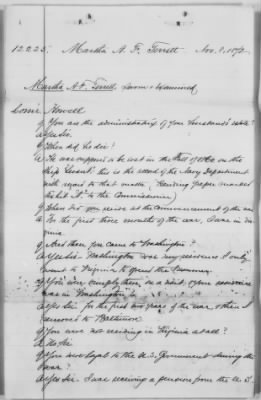 12225. Martha A. F. Terrett Nov. 8. 1872
Martha A. F. Terrett Sworn & Examined
Com'r Howell
Q Are you the administratrix of your husband's estate?
A Yes Sir.
Q When did he die?
A He was supposed to be lost in the Fall of on the
Ship Levant; this is the record of the Navy Department
with regard to that vessel. (Handing paper marked
Exhibit A. to the Commissioner)
Q Where did you reside at the commencement of the war
A For the first three months of the war, I was in Vir
ginia
Q And then you came to Washington?
A Yes Sir. Washington was my residence I only
went to Virginia to spend the Summer.
Q You were then in a kind of your residence
was in Washington
A Yes Sir for the first two years of the war, & then I
removed to Baltimore
Q You were not residing in Virginia at all?
A No Sir
Q Were you loyal to the U.S. Government during the
war?
A Yes Sir. I was receiving a pension from the U.S.